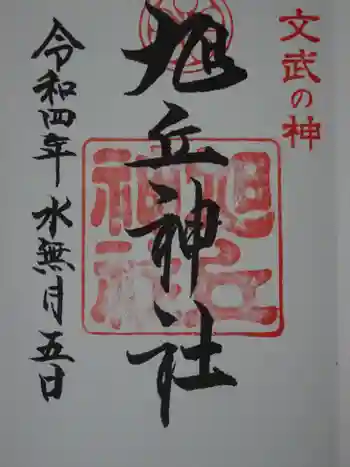 文武の神
旭丘神社
旭丘神社
令和四年水無月五日